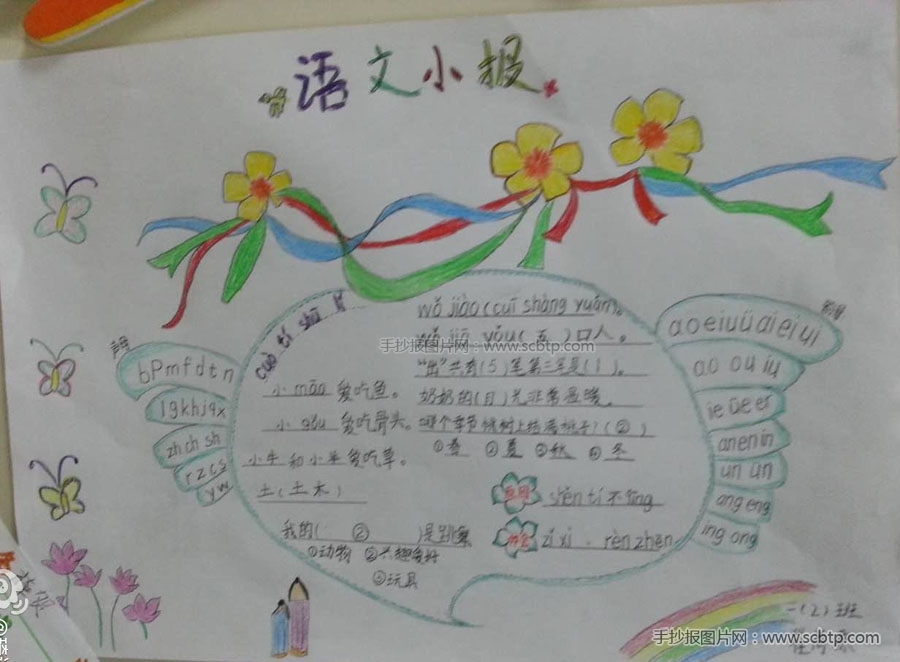 语文小报
cuò tí shū
wǒ jiào (cuī shàng yuán)。
wǒ jiā yǒu (五)口人。
手抄报图片网：www.scbtp.com
"出"共有(5)笔第二笔是(1)。
小 māo 爱吃鱼。
奶奶的(目)光非常温暖。
小 gǒu 爱吃骨头。
哪个季节桃树上结满桃子?(②)
①春 ②夏 ③秋 ④冬
小牛和小羊爱吃草。
土(土木)
shěn tí 不
zǐ xì 、rèn zhēn
我的(②)是跳舞
①动物 ②兴趣爱好
③玩具
声母
bpmfdtn
lgkhjqx
zh ch sh
r z c s
y w
韵母
a o e i u ü ai ei ui
ao ou iu
ie üe er
an en in
un ün
ang eng
ing ong
一(2)班
手抄报图片网：www.scbtp.com